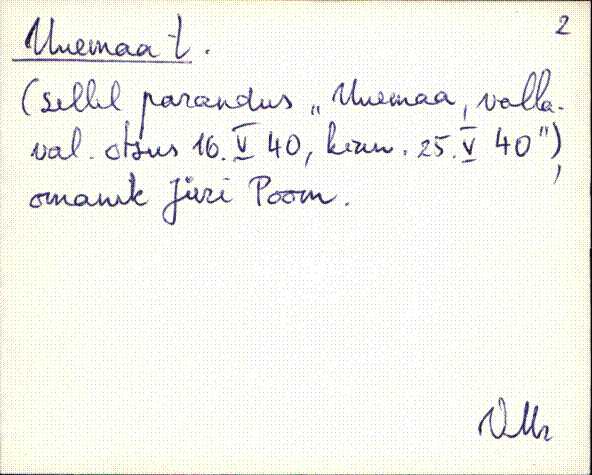 2
Uuemaa t.
(sellel parandus „Uuemaa, valla-
val. otsus 16. V 40, kinn. 25. V 40"),
omanik Jüri Poom.
VMr